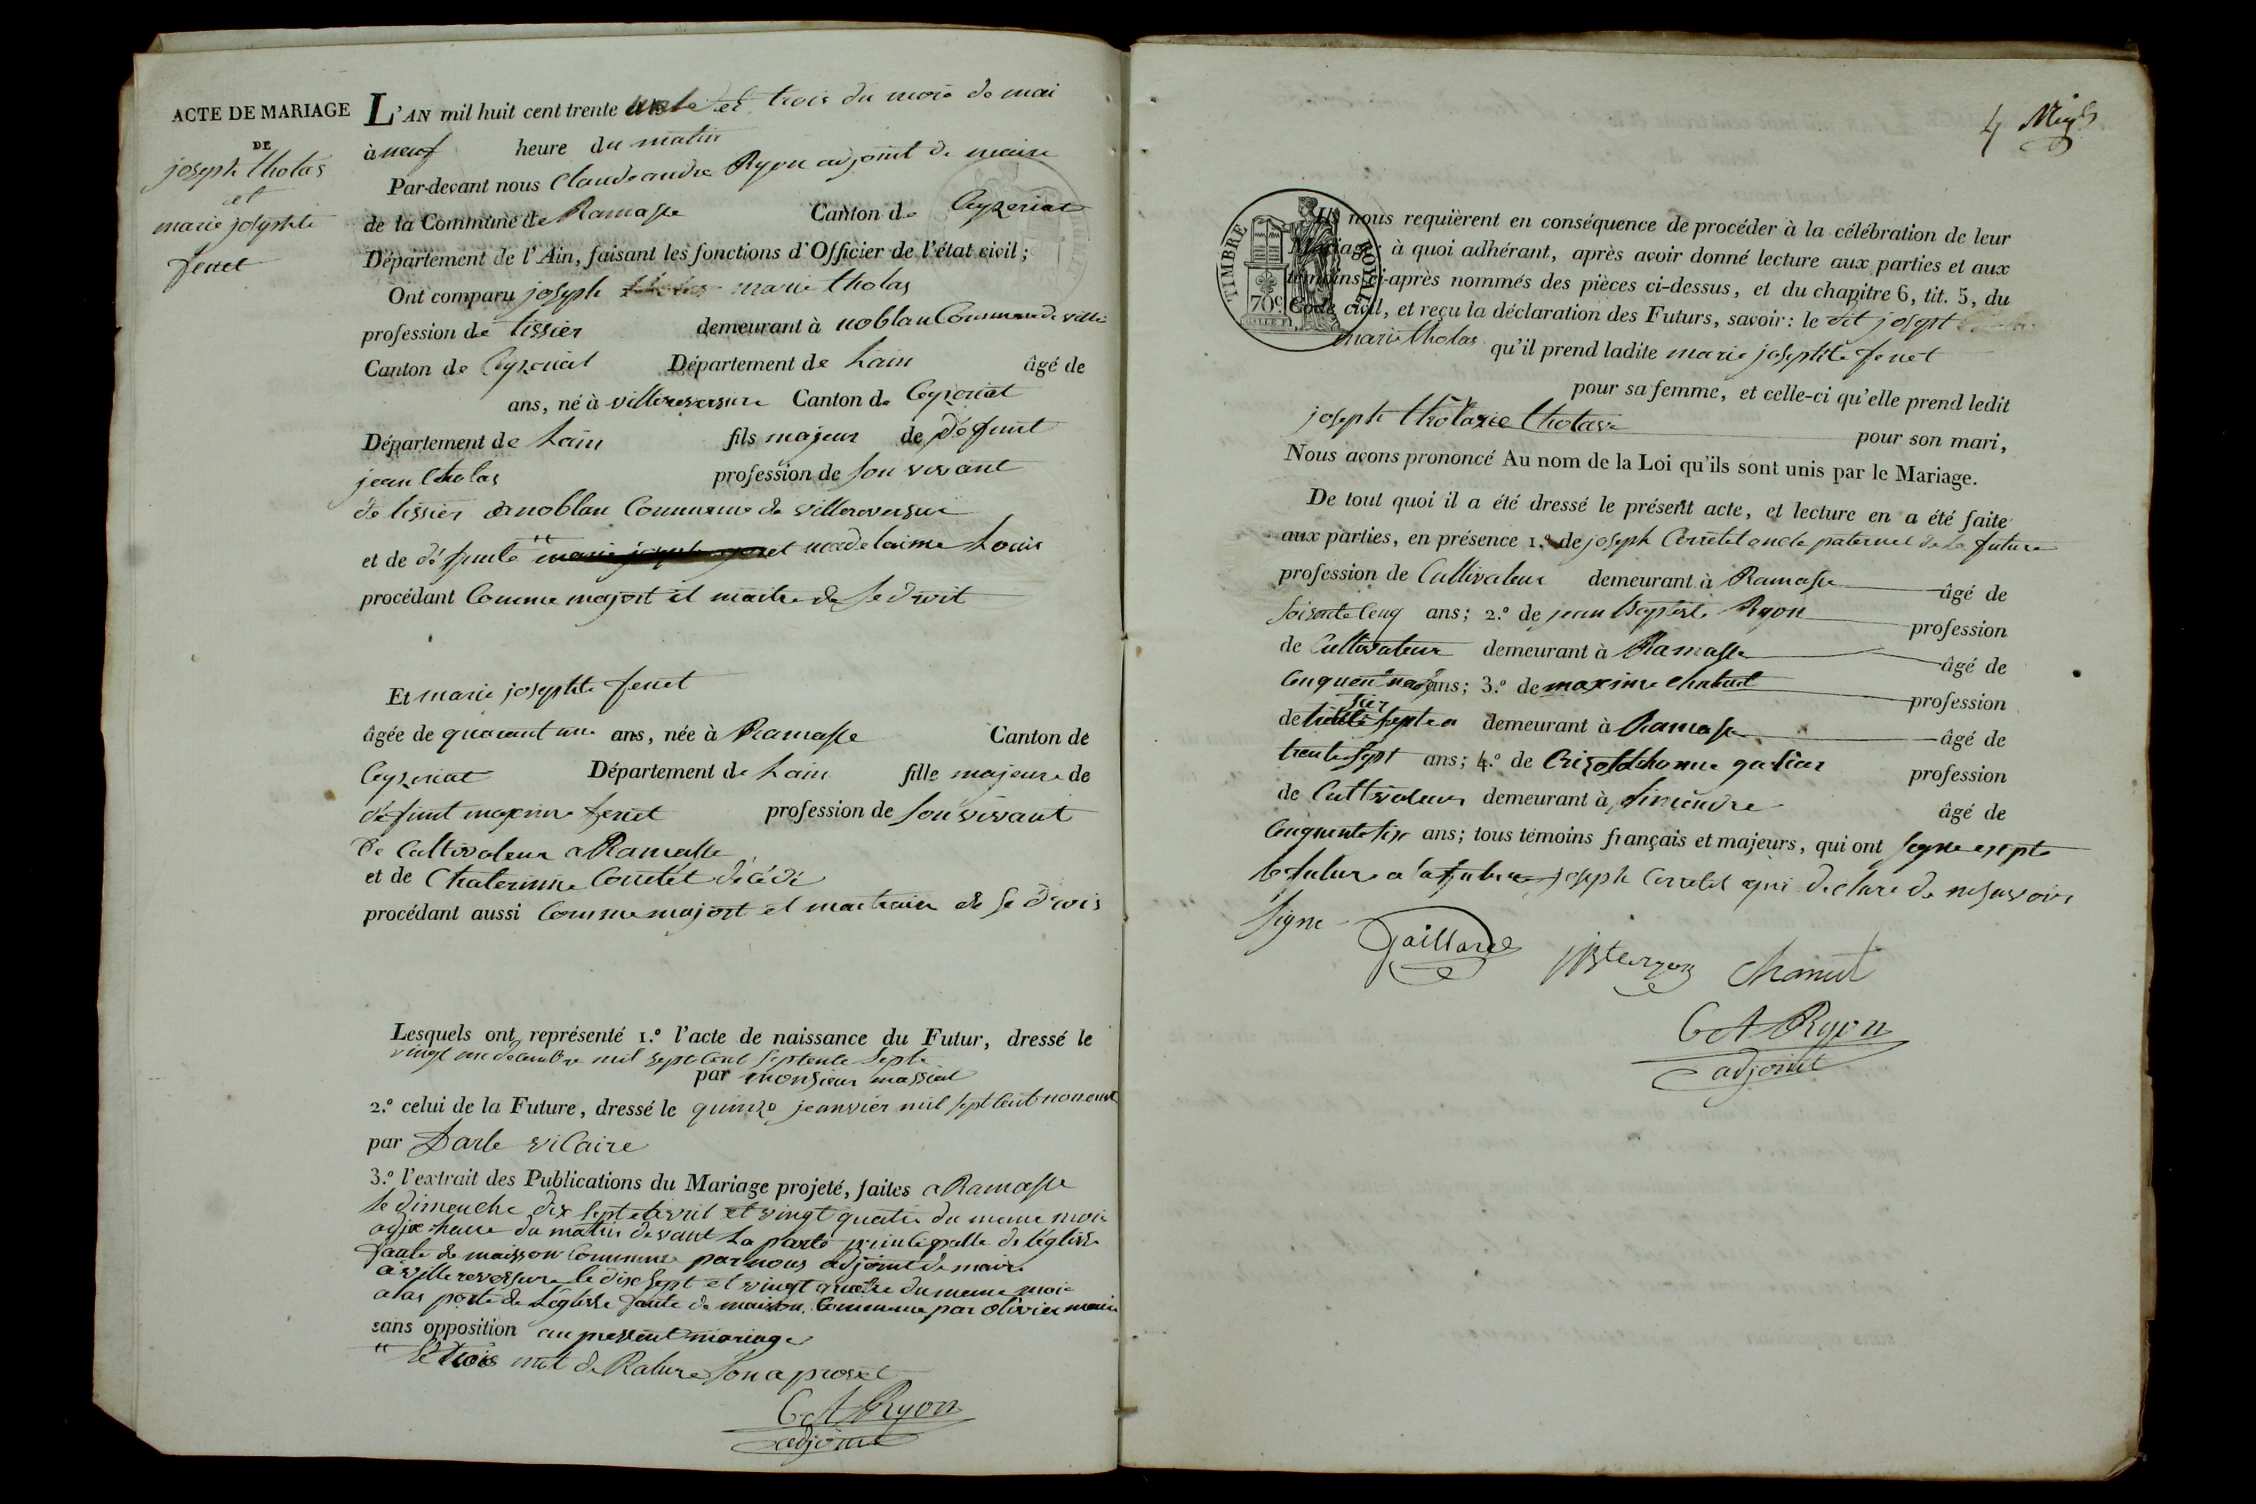 ACTE DE MARIAGE
DE
joseph tholas
et
marie josephte
ferret
L'AN mil huit cent trente et trois du mois de mai
à neuf heure du matin
Par-devant nous Claude andre Ryon adjoint de maire
de la Commune de Ramasse Canton de Ceyzeriat
Département de l'Ain, faisant les fonctions d'Officier de l'état civil;
Ont comparu joseph marie tholas
profession de tissier demeurant à noblan Commune de ville
Canton de Ceyzeriat Département de Lain âgé de
ans, né à villereversure Canton de Ceyzeriat
Département de Lain fils majeur de défunt
jean tholas profession de son vivant
de tissier a noblan Commune de villereversure
et de défunte madelaine Louis
procédant Comme majort et maitre de se droit
Et marie josephte ferret
âgée de quarant une ans, née à Ramasse Canton de
Ceyzeriat Département de Lain fille majeure de
défunt maxime ferret profession de son vivant
de Cultivateur a Ramasse
et de Chaterinne Corretet décédé
procédant aussi Comme majort et maitraise de se drois
Lesquels ont représenté 1.º l'acte de naissance du Futur, dressé le
vingt une décembre mil sept cent septente septe
par monsieur massiat
2.º celui de la Future, dressé le quinze jeanvier mil sept cent nonente
par Darle vicaire
3.º l'extrait des Publications du Mariage projeté, faites a Ramasse
le dimenche dix sept et vingt quatre du meme mois
a dix heure du matin devant la porte principalle de léglise
faute de maisson Commune par nous adjoint de maire
a villereversure le dix sept et vingt quatre du meme mois
a las porte de Léglise faute de maison Commune par olivier maire
sans opposition au pressent mariage
le trois mot de Rature son aprové
C A Ryon
adjoint
4
TIMBRE ROYAL
70c
Ils nous requièrent en conséquence de procéder à la célébration de leur
Mariage; à quoi adhérant, après avoir donné lecture aux parties et aux
témoins ci-après nommés des pièces ci-dessus, et du chapitre 6, tit. 5, du
Code civil, et reçu la déclaration des Futurs, savoir: le dit joseph
marie tholas qu'il prend ladite marie josephte ferret
pour sa femme, et celle-ci qu'elle prend ledit
joseph tholas
pour son mari,
Nous avons prononcé Au nom de la Loi qu'ils sont unis par le Mariage.
De tout quoi il a été dressé le présent acte, et lecture en a été faite
aux parties, en présence 1.º de joseph Corretet oncle paternel de la future
profession de Cultivateur demeurant à Ramasse âgé de
soisente Cenq ans; 2.º de jean baptiste Ryon profession
de Cultivateur demeurant à Ramasse âgé de
ans; 3.º de maxime Chanut profession
de demeurant à Ramasse âgé de
trente sept ans; 4.º de profession
de Cultivateur demeurant à Simendre âgé de
Cenquente six ans; tous témoins français et majeurs, qui ont signe exepte
le futur e la future joseph Corretet qui declare de ne savoir
signe
Gaillard
jBte ryon
Chanut
C A Ryon
adjoint